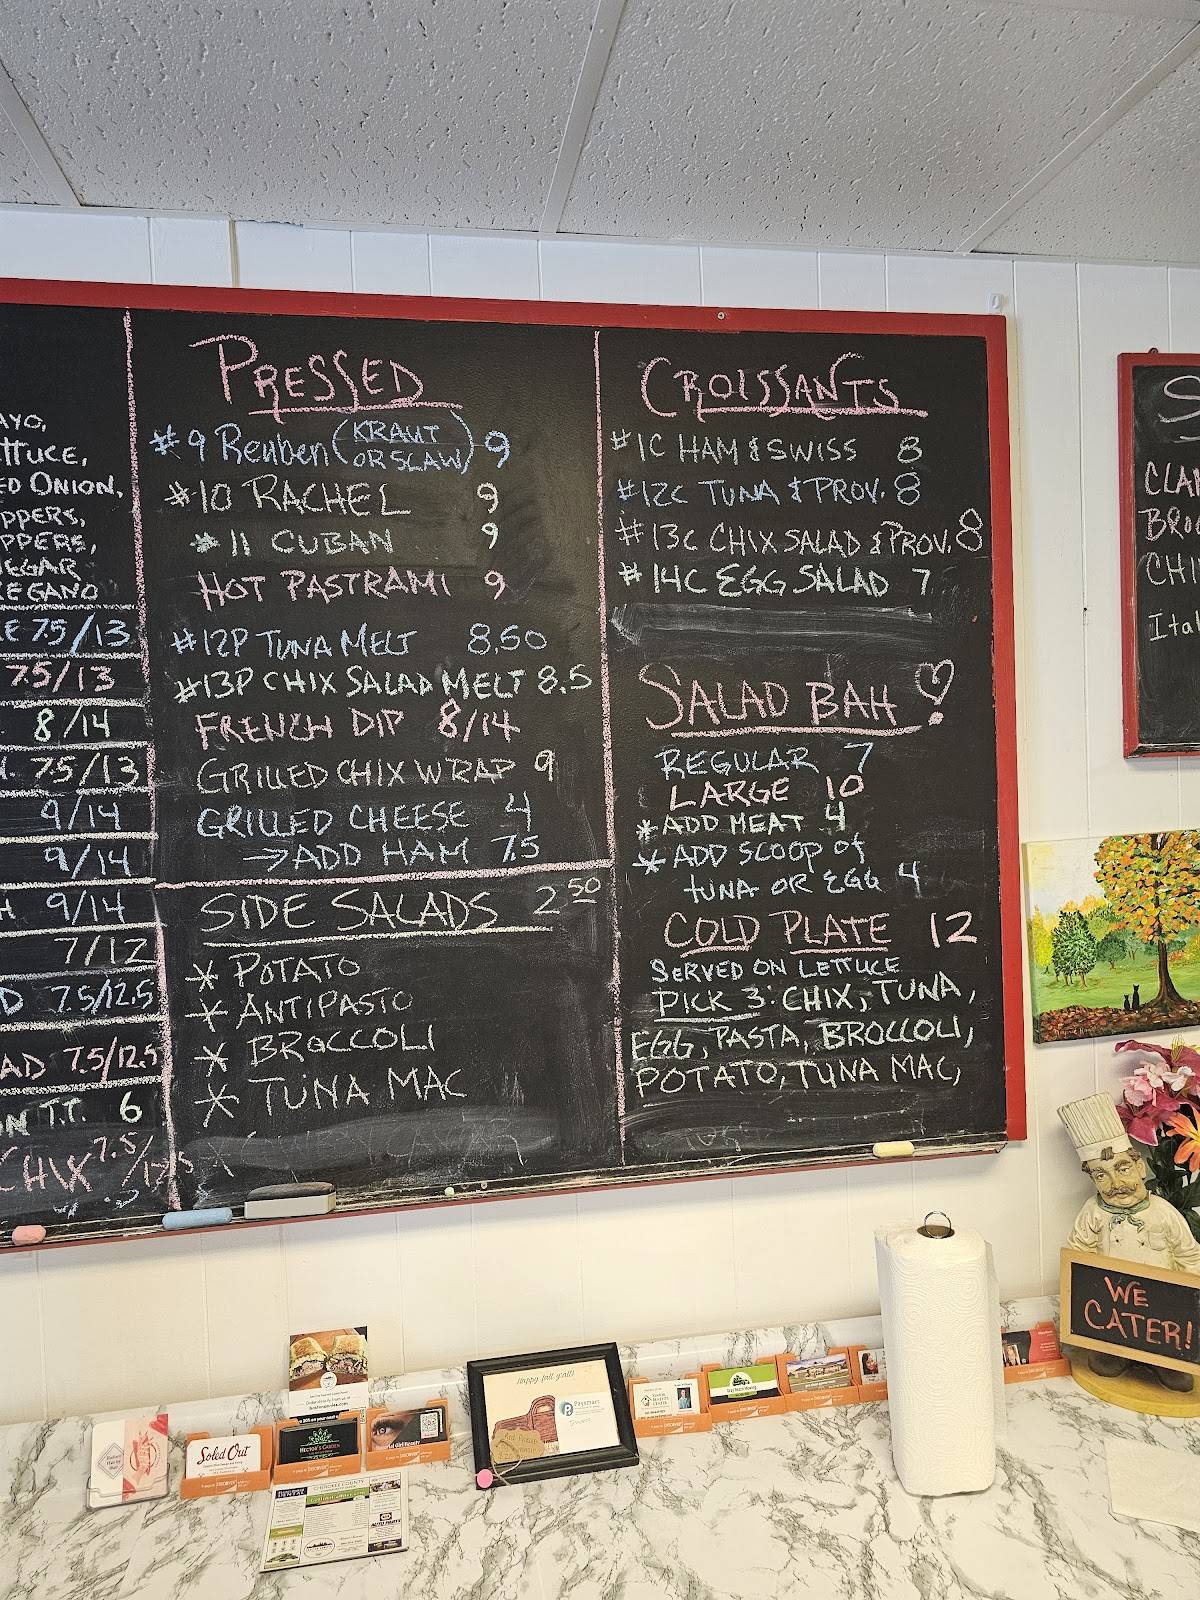 AYO,
ETTUCE,
ED ONION,
PPERS,
PPERS,
NEGAR
REGANO
E 7.5/13
7.5/13
8/14
7.5/13
9/14
9/14
H 9/14
7/12
D 7.5/12.5
AD 7.5/12.5
N T.T. 6
CHIX 7.5/
PRESSED
#9 Reuben (KRAUT
OR SLAW) 9
#10 RACHEL 9
#11 CUBAN 9
HOT PASTRAMI 9
#12P TUNA MELT 8.50
#13P CHIX SALAD MELT 8.5
FRENCH DIP 8/14
GRILLED CHIX WRAP 9
GRILLED CHEESE 4
→ADD HAM 7.5
SIDE SALADS 2.50
* POTATO
* ANTIPASTO
* BROCCOLI
* TUNA MAC
CROISSANTS
#1C HAM & SWISS 8
#12C TUNA & PROV. 8
#13C CHIX SALAD & PROV. 8
#14C EGG SALAD 7
SALAD BAH
REGULAR 7
LARGE 10
*ADD MEAT 4
*ADD SCOOP of
TUNA OR EGG 4
COLD PLATE 12
SERVED ON LETTUCE
PICK 3: CHIX, TUNA,
EGG, PASTA, BROCCOLI,
POTATO, TUNA MAC,
S
CLA
BRO
CHI
Ital
WE
CATER!
Happy fall y'all!
Paysmart
Soled Out
HECTOR'S GARDEN